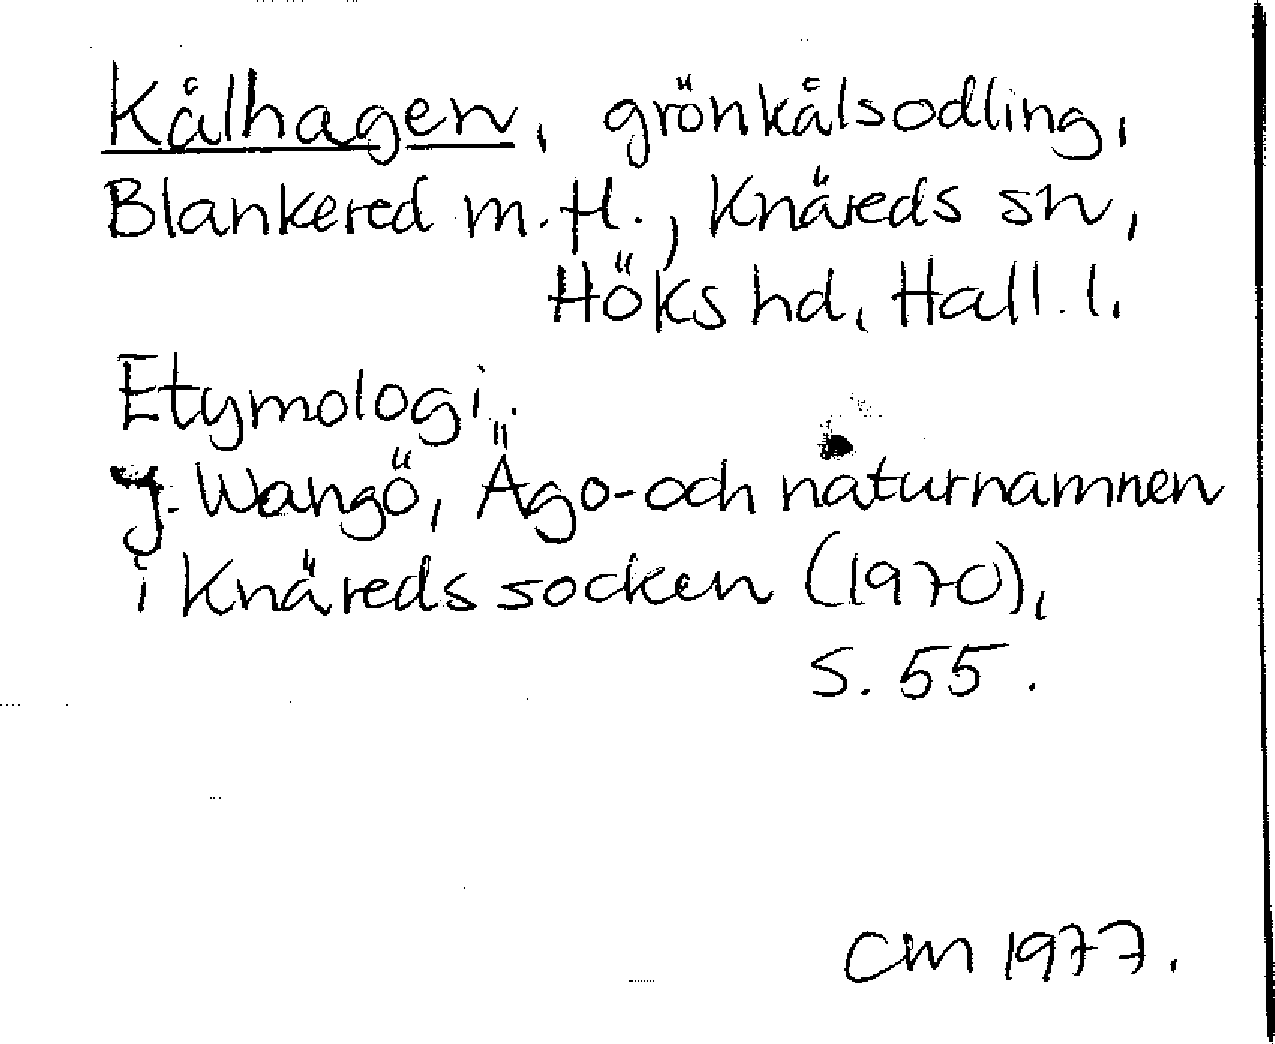 Kålhagen, grönkålsodling,
Blankered m.fl., Knäreds sn,
Höks hd, Hall. l.
Etymologi.
J. Wangö, Ägo- och naturnamnen
i Knäreds socken (1970),
s. 55.
CM 1977.